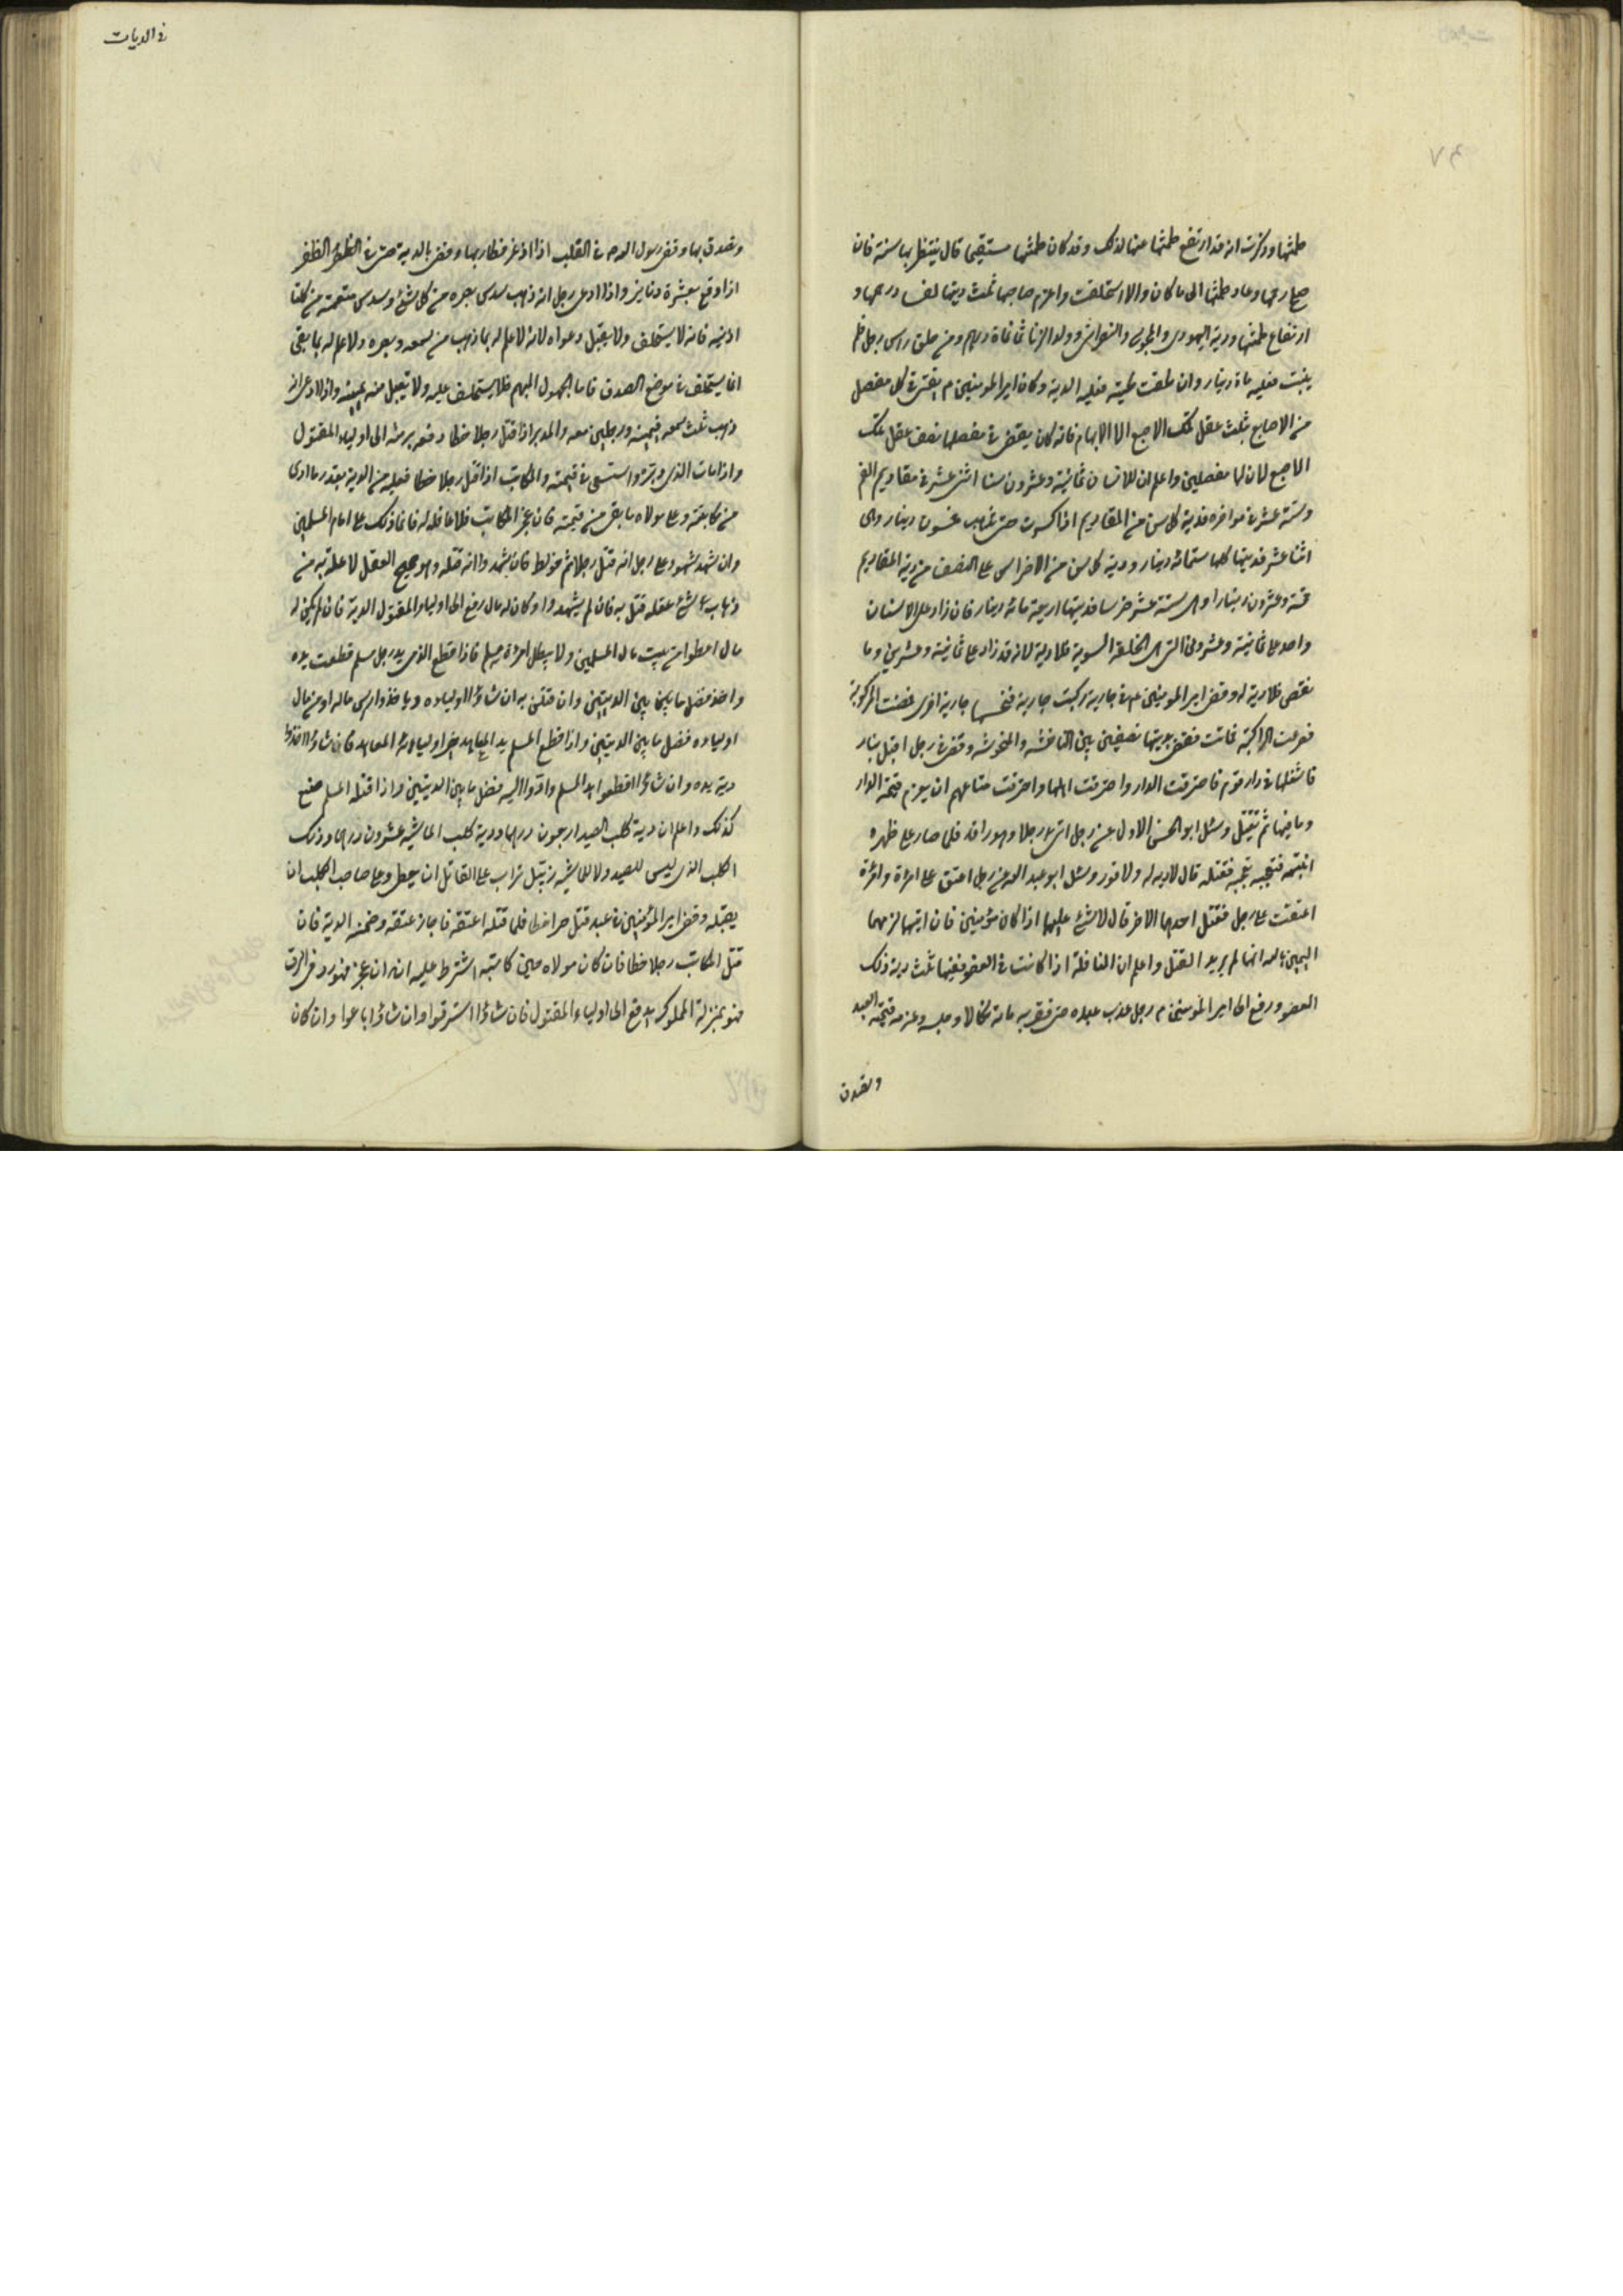 طمثها وذكرت انه قد ارتفع طمثها عنها لذلك وقد كان طمثها مستقيما قال ينتظر بها سنة فان
صلح رحمها وعاد طمثها الى ما كان والا استحلفت واغرم ضاربها ثلث ديتها لفساد رحمها و
ارتفاع طمثها ودية اليهودى والمجوسى والنصرانى وولد الزنا ثمانماة درهم ومن حلق راس رجل فلم
ينبت فعليه ماة دينار وان حلقت لحيته فعليه الدية وكان امير المومنين م يقضى فى كل مفصل
من الاصابع بثلث عقل تلك الاصبع الا الابهام فانه كان يقضى فى مفصلها بنصف عقل تلك
الاصبع لان لها مفصلين واعلم ان للانسان ثمانية وعشرون سنا اثنى عشر فى مقاديم الفم
وستة عشر فى مواخره فدية كل سن من المقاديم اذا كسرت حتى تذهب خمسون دينار وهى
اثنا عشر فديتها كلها ستمائة دينار ودية كل سن من الاضراس على النصف من دية المقاديم
خمسة وعشرون دينارا وهى ستة عشر ضرسا فديتها اربعة مائة دينار فان زاد على الاسنان
واحد على ثمانية وعشرون التى هى الخلقة السوية فلا دية لانه قد زاد على ثمانية وعشرين وما
نقص فلا دية له وقضى امير المومنين ع فى جارية ركبت جارية فنخسها جارية اخرى فقمصت المركوبة
فصرعت الراكبة فماتت فقضى بديتها نصفين بين الناخسة والمنخوسة وقضى فى رجل اقبل بنار
فاشعلها فى دار قوم فاحترقت الدار واحترقت اهلها واحترقت متاعهم ان يغرم قيمة الدار
وما فيها ثم يقتل وسئل ابو الحسن الاول عن رجل اتى رجلا وهو راقد فلما صار على ظهره
انتبه فبعجه بعجة فقتله قال لا دية له ولا قود وسئل ابو عبد الله عن رجل اعنق على امرئة وامرئة
اعنقت على رجل فقتل احدهما الاخر قال لا شئ عليهما اذا كانا مؤمنين فان اتهما لزمهما
اليمين بالله انهما لم يريدا القتل واعلم ان النافذة اذا كانت فى العضو ففيها ثلث دية ذلك
العضو ورفع الى امير المومنين م رجل عذب عبده حتى مات فضربه مائة نكالا وحبسه وغرمه قيمة العبد
وتصدق
فى الديات
وتصدق بها وقضى رسول الله ص فى القلب اذا اذعر فطار بها وقضى بالدية حتى فى الظفر الظفر
اذا وقع بعشرة دنانير واذا ادعى رجل انه ذهب سدس بصره من كل شئ وسدس سمعه من كلتا
اذنيه فانه لا يستحلف ولا يقبل دعواه لانه لا علم له بما ذهب من سمعه وبصره ولا علم له بما بقى
انما يستحلف فى موضع الصدق فاما المجهول المبهم فلا يستحلف عليه ولا تقبل منه يمينه واذا ادعى انه
ذهب ثلث سمعه فيمينه ورجلين معه والمدبر اذا قتل رجلا خطا دفعه برمته الى اولياء المقتول
واذا مات الذى دبره استسعى فى قيمته والمكاتب اذا قتل رجلا خطا فعليه من الدية بقدر ما ادى
من مكاتبته وعلى مولاه ما بقى من قيمته فان عجز المكاتب فلا عاقلة له فانما ذلك على امام المسلمين
وان شهد شهود على رجل انه قتل رجلا ثم خولط فان شهدوا انه قتله وهو صحيح العقل لا علة به من
ذهاب عقله قتل به فان لم يشهدوا وكان له مال دفع الى اولياء المقتول الدية فان لم يكن له
مال اعطوا من بيت مال المسلمين ولا يبطل امرئ مسلم فاذا قطع الذمى يد رجل مسلم قطعت يده
واخذ فضل ما بين الديتين وان قتل قتلوه به ان شاؤا اولياءه وياخذوا من ماله او من مال
اولياءه فضل ما بين الديتين واذا قطع المسلم يد المعاهد خير اولياء المعاهد فان شاؤا اخذوا
دية يده وان شاؤا قطعوا يد المسلم وادوا اليه فضل ما بين الديتين واذا قتله المسلم صنع
كذلك واعلم ان دية كلب الصيد اربعون درهما ودية كلب الماشية عشرون درهما ودية
الكلب الذى ليس للصيد ولا للماشية زنبيل تراب على القاتل ان يعطى وعلى صاحب الكلب ان
يقبله وقضى امير المؤمنين فى عبد قتل حرا خطا فلما قتله اعتقه مولاه فاجاز عتقه وضمنه الدية فان
قتل المكاتب رجلا خطا فان كان مولاه حين كاتبه اشترط عليه انه ان عجز فهو رد فى الرق
فهو بمنزلة المملوك يدفع الى اولياء المقتول فان شاؤا استرقوا وان شاؤا باعوا وان كان